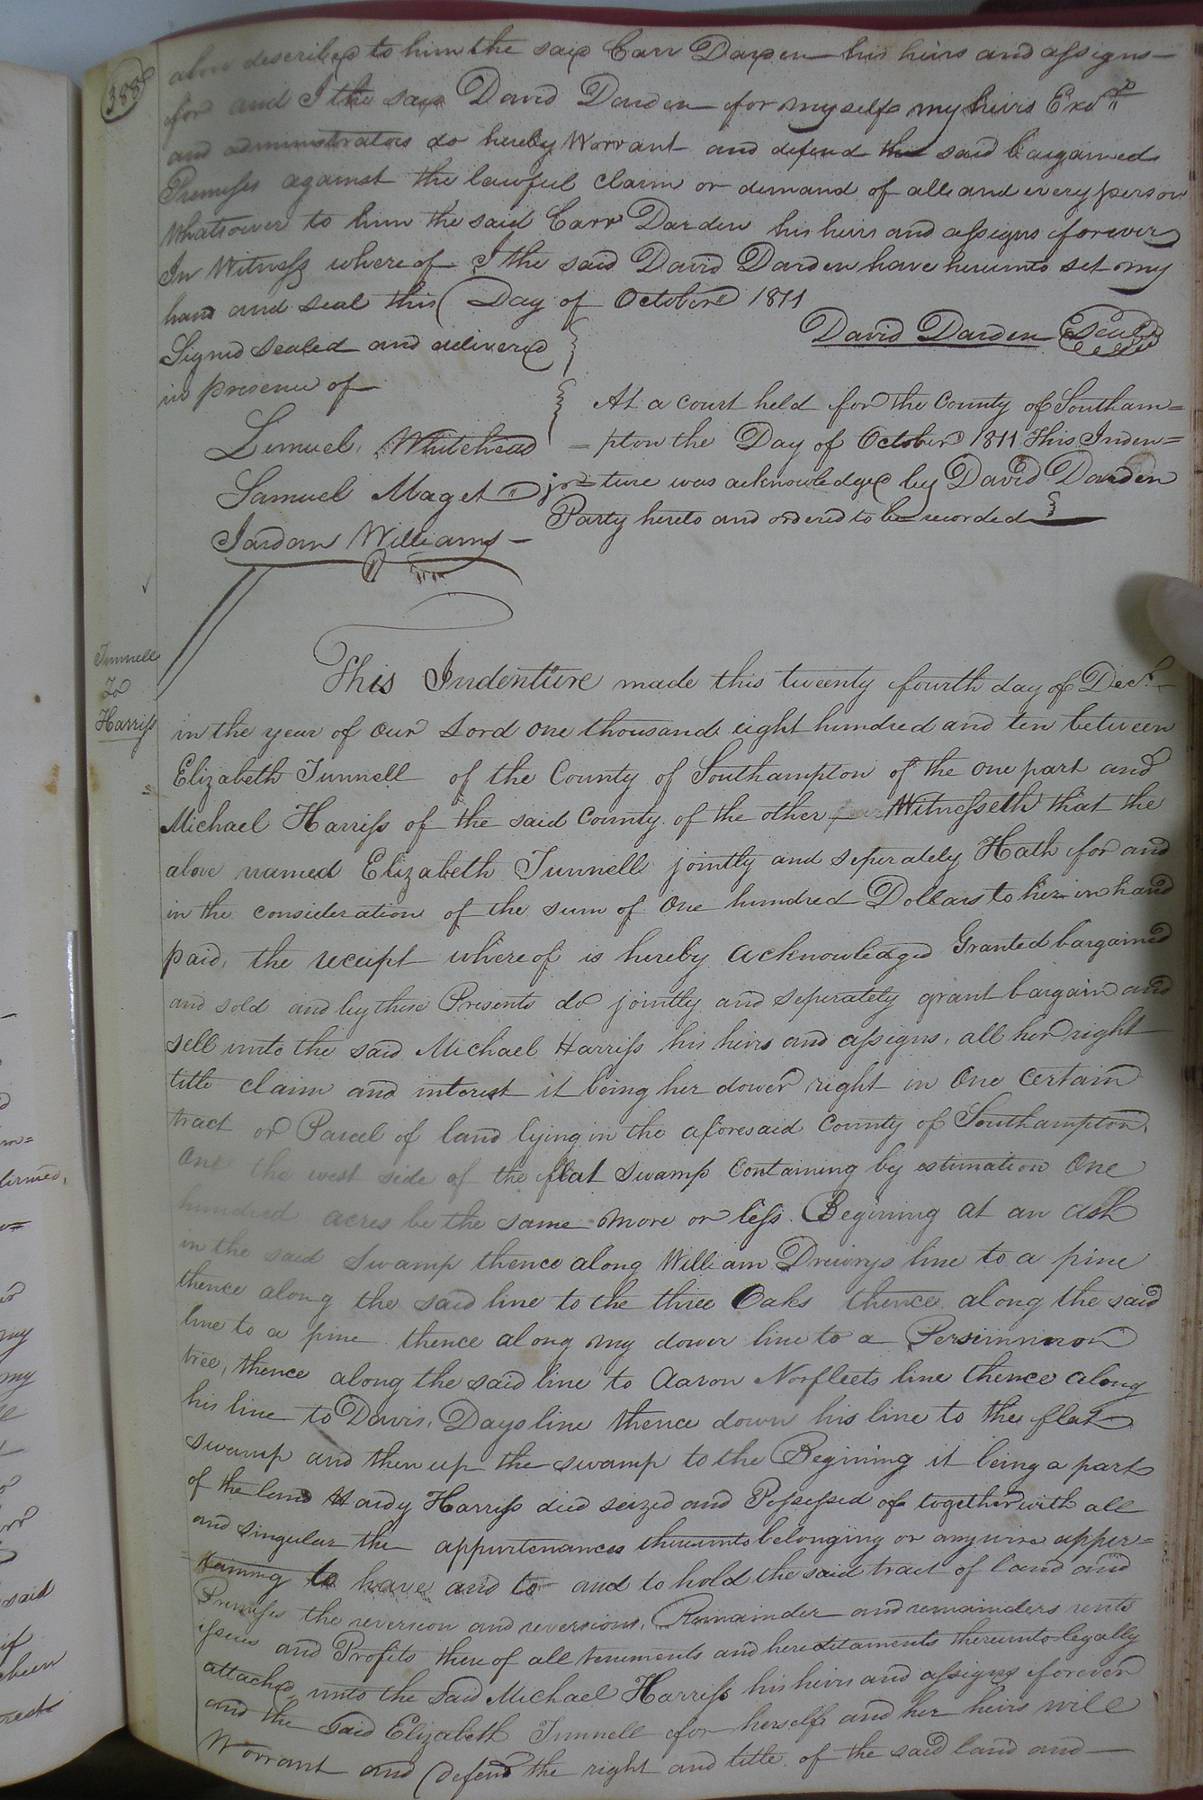 388
above described to him the said Carr Darden his heirs and assigns
for and I the said David Darden for myself my heirs Exors
and administrators do hereby Worrant and defend the said bargained
Premises against the lawful claim or demand of all and every person
Whatsoever to him the said Carr Darden his heirs and assigns forever
In Witness where of I the said David Darden have hereunto set my
hand and seal this Day of October 1811
Signed sealed and delivered
in presence of
David Darden Seal
Lemuel Whitehead
Samuel Maget
Jordan Williams
At a court held for the County of Southam=
=pton the Day of October 1811 This Inden=
ture was acknowledged by David Darden
Party hereto and ordered to be recorded
Tunnell
To
Harriss
This Indenture made this twenty fourth day of Decr
in the year of our Lord one thousand eight hundred and ten between
Elizabeth Tunnell of the County of Southampton of the one part and
Michael Harriss of the said County of the other Witnesseth that the
above named Elizabeth Tunnell jointly and seperately Hath for and
in the consideration of the sum of One hundred Dollars to her in hand
paid, the receipt where of is hereby acknowledged Granted bargained
and sold and by these Presents do jointly and seperately grant bargain and
sell unto the said Michael Harriss his heirs and assigns, all her right
title claim and interest it being her dower right in One certain
tract or Parcel of land lying in the aforesaid County of Southampton,
One the west side of the flat swamp Containing by estimation One
hundred acres be the same more or less. Begining at an ash
in the said Swamp thence along William Drewrys line to a pine
thence along the said line to the three Oaks thence along the said
line to a pine thence along my dower line to a Persimmon
tree, thence along the said line to Aaron Norfleets line thence along
his line to Davis Days line thence down his line to the flat
swamp and then up the swamp to the Begining it being a part
of the land Hardy Harriss died seized and Possessed of together with all
and singular the appurtenances thereunto belonging or any wise apper=
taining to have and to and to hold the said tract of land and
Premises the reversion and reversions, Remainder and remainders rents
issues and Profits there of all tenements and hereditaments thereunto legally
attached unto the Said Michael Harriss his heirs and assigns forever
and the Said Elizabeth Tunnell for herself and her heirs will
Worrant and defend the right and title of the said land and